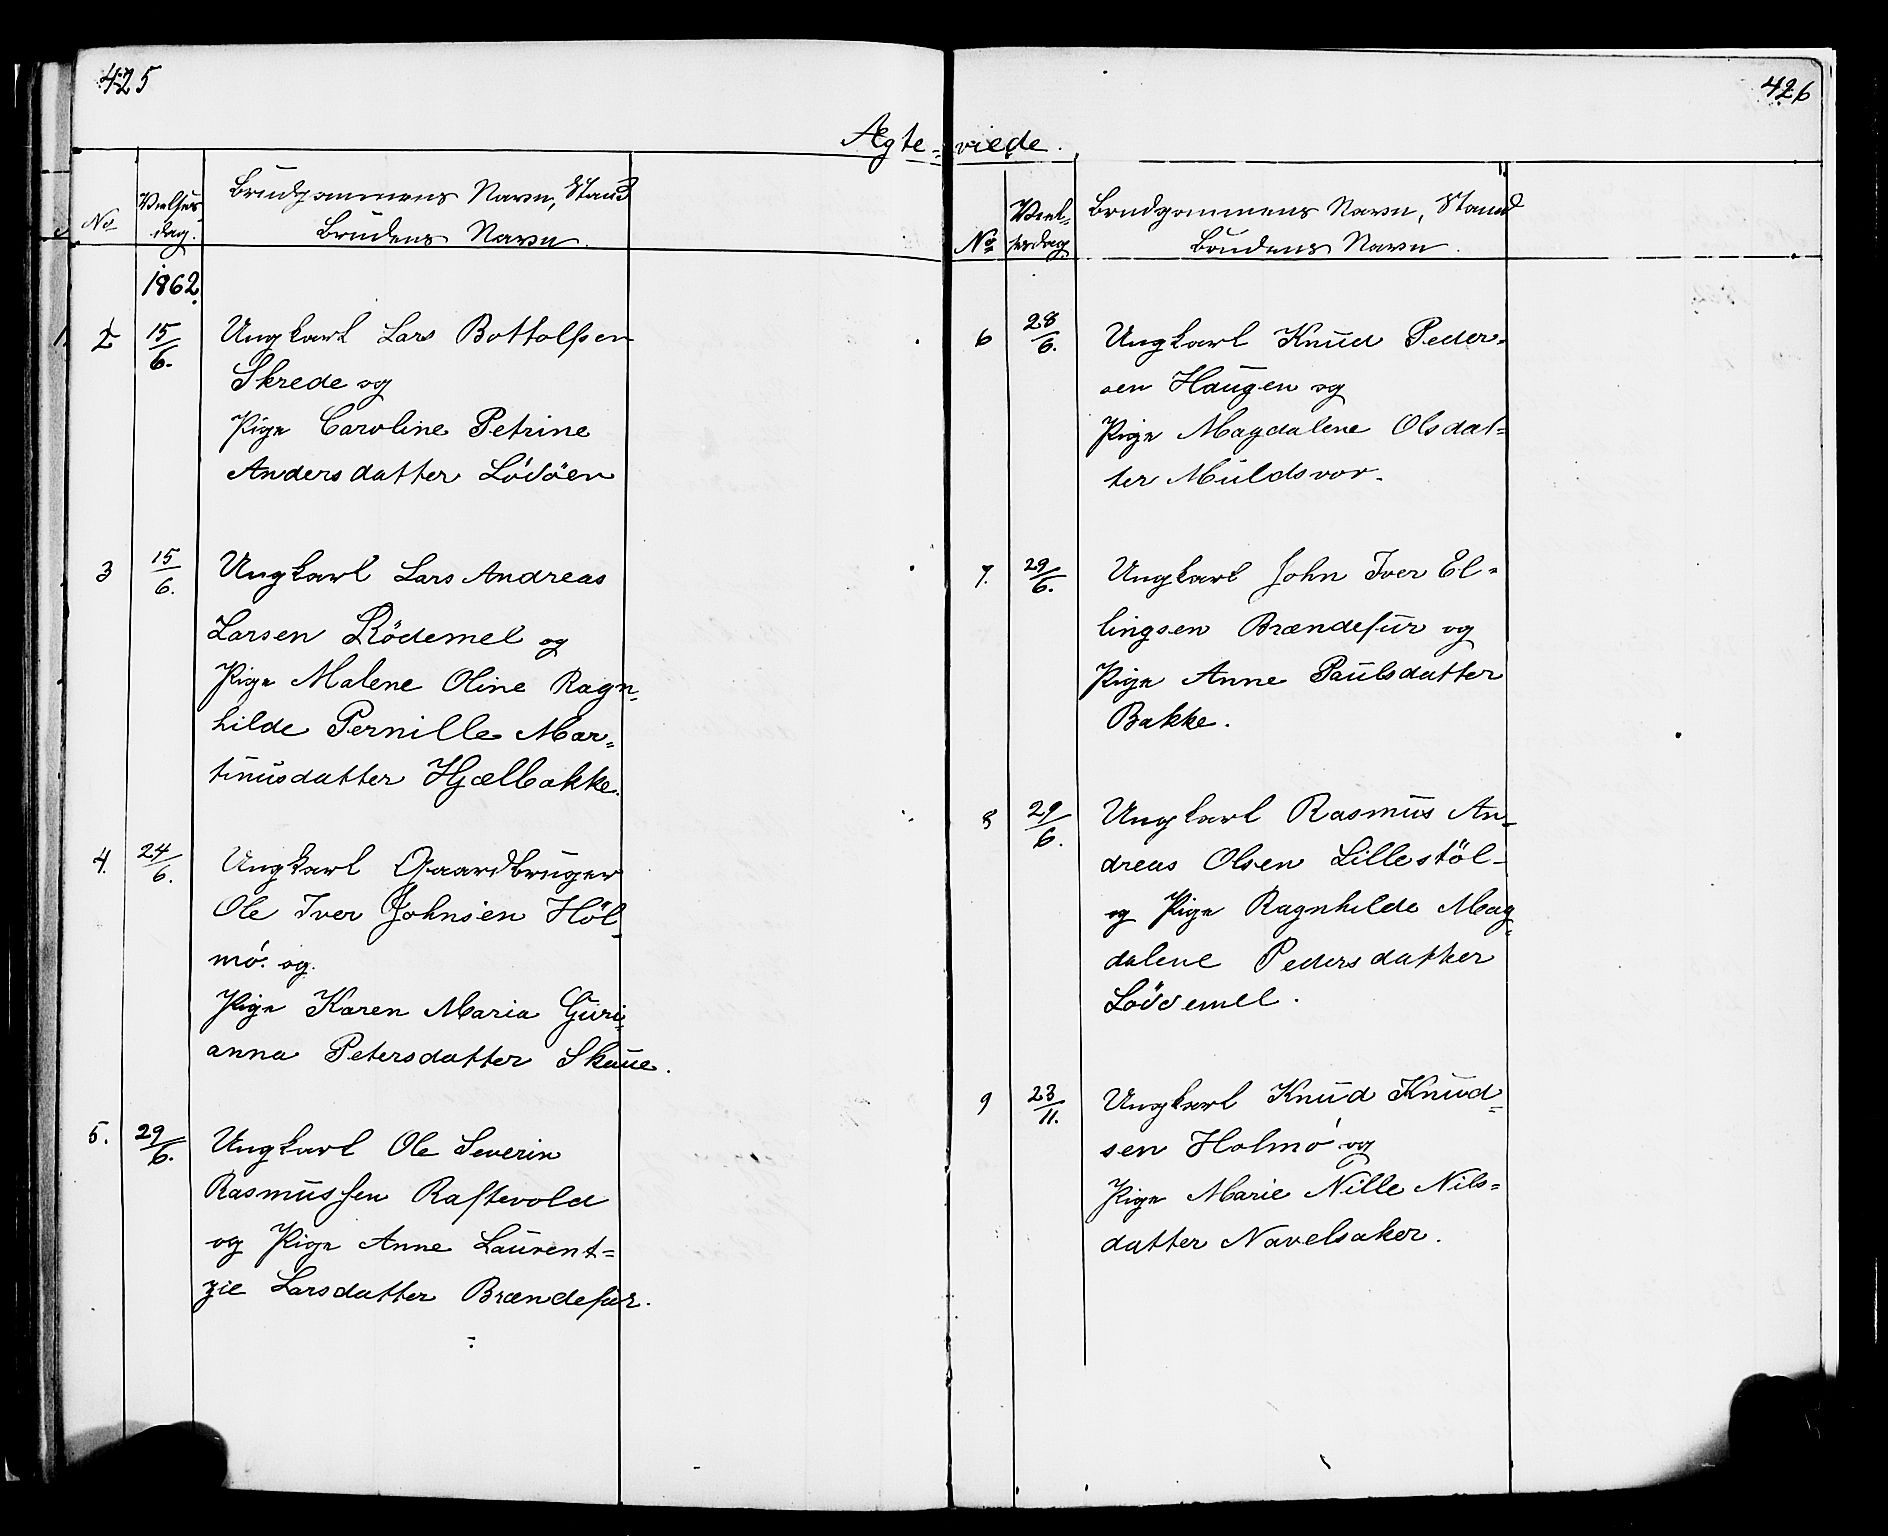 425
Ægte-viede.
No
Vielses
dag.
Brudgommens Navn, Stand
Brudens Navn.
1862.
2 15/6. Ungkarl Lars Bottolfsen
Skrede og
Pige Caroline Petrine
Andersdatter Lödöen
3 15/6. Ungkarl Lars Andreas
Larsen Rödemel og
Pige Malene Oline Ragn-
hilde Pernille Mar-
tinusdatter Hjælbakke.
4. 24/6. Ungkarl Gaardbruger
Ole Iver Johnsen Höl-
mö. og.
Pige Karen Maria Guri-
anna Petersdatter Skaue.
5. 29/6. Ungkarl Ole Severin
Rasmussen Raftevold
og Pige Anne Laurent-
zie Larsdatter Brændefur.
426
No
Viel-
sesdag
Brudgommens Navn, Stand
Brudens Navn.
6 28/6. Ungkarl Knud Peder-
sen Haugen og
Pige Magdalene Olsdat-
ter Muldsvor.
7. 29/6. Ungkarl John Iver El-
lingsen Brændefur og
Pige Anne Paulsdatter
Bakke.
8 29/6. Ungkarl Rasmus An-
dreas Olsen Lillestöl-
og Pige Ragnhilde Mag-
dalene Pedersdatter
Lödemel.
9 23/11. Ungkarl Knud Knud-
sen Holmö og
Pige Marie Nille Nils-
datter Navelsaker.